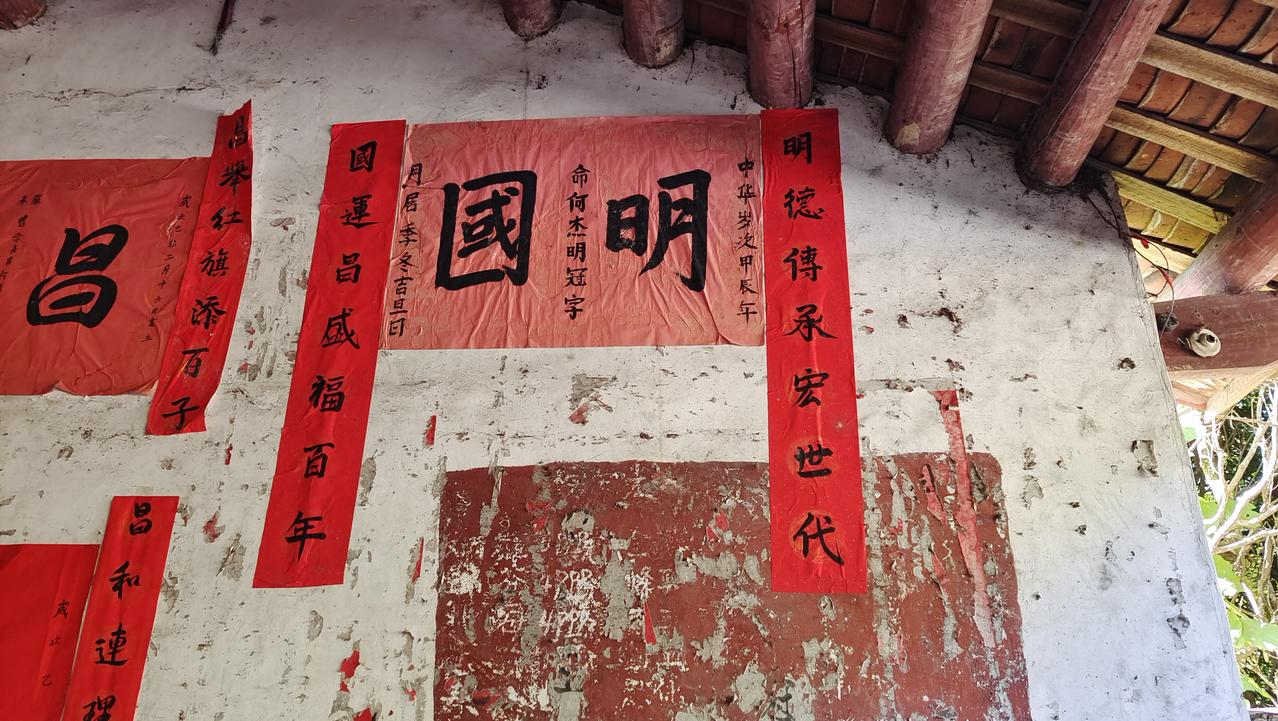 明德傳承宏世代
中华岁次甲辰年
明
命何杰明冠字
國
月居季冬吉旦日
國運昌盛福百年
昌舉紅旗添百子
歲次乙巳二月十六日
昌
昌和連理
歲次乙